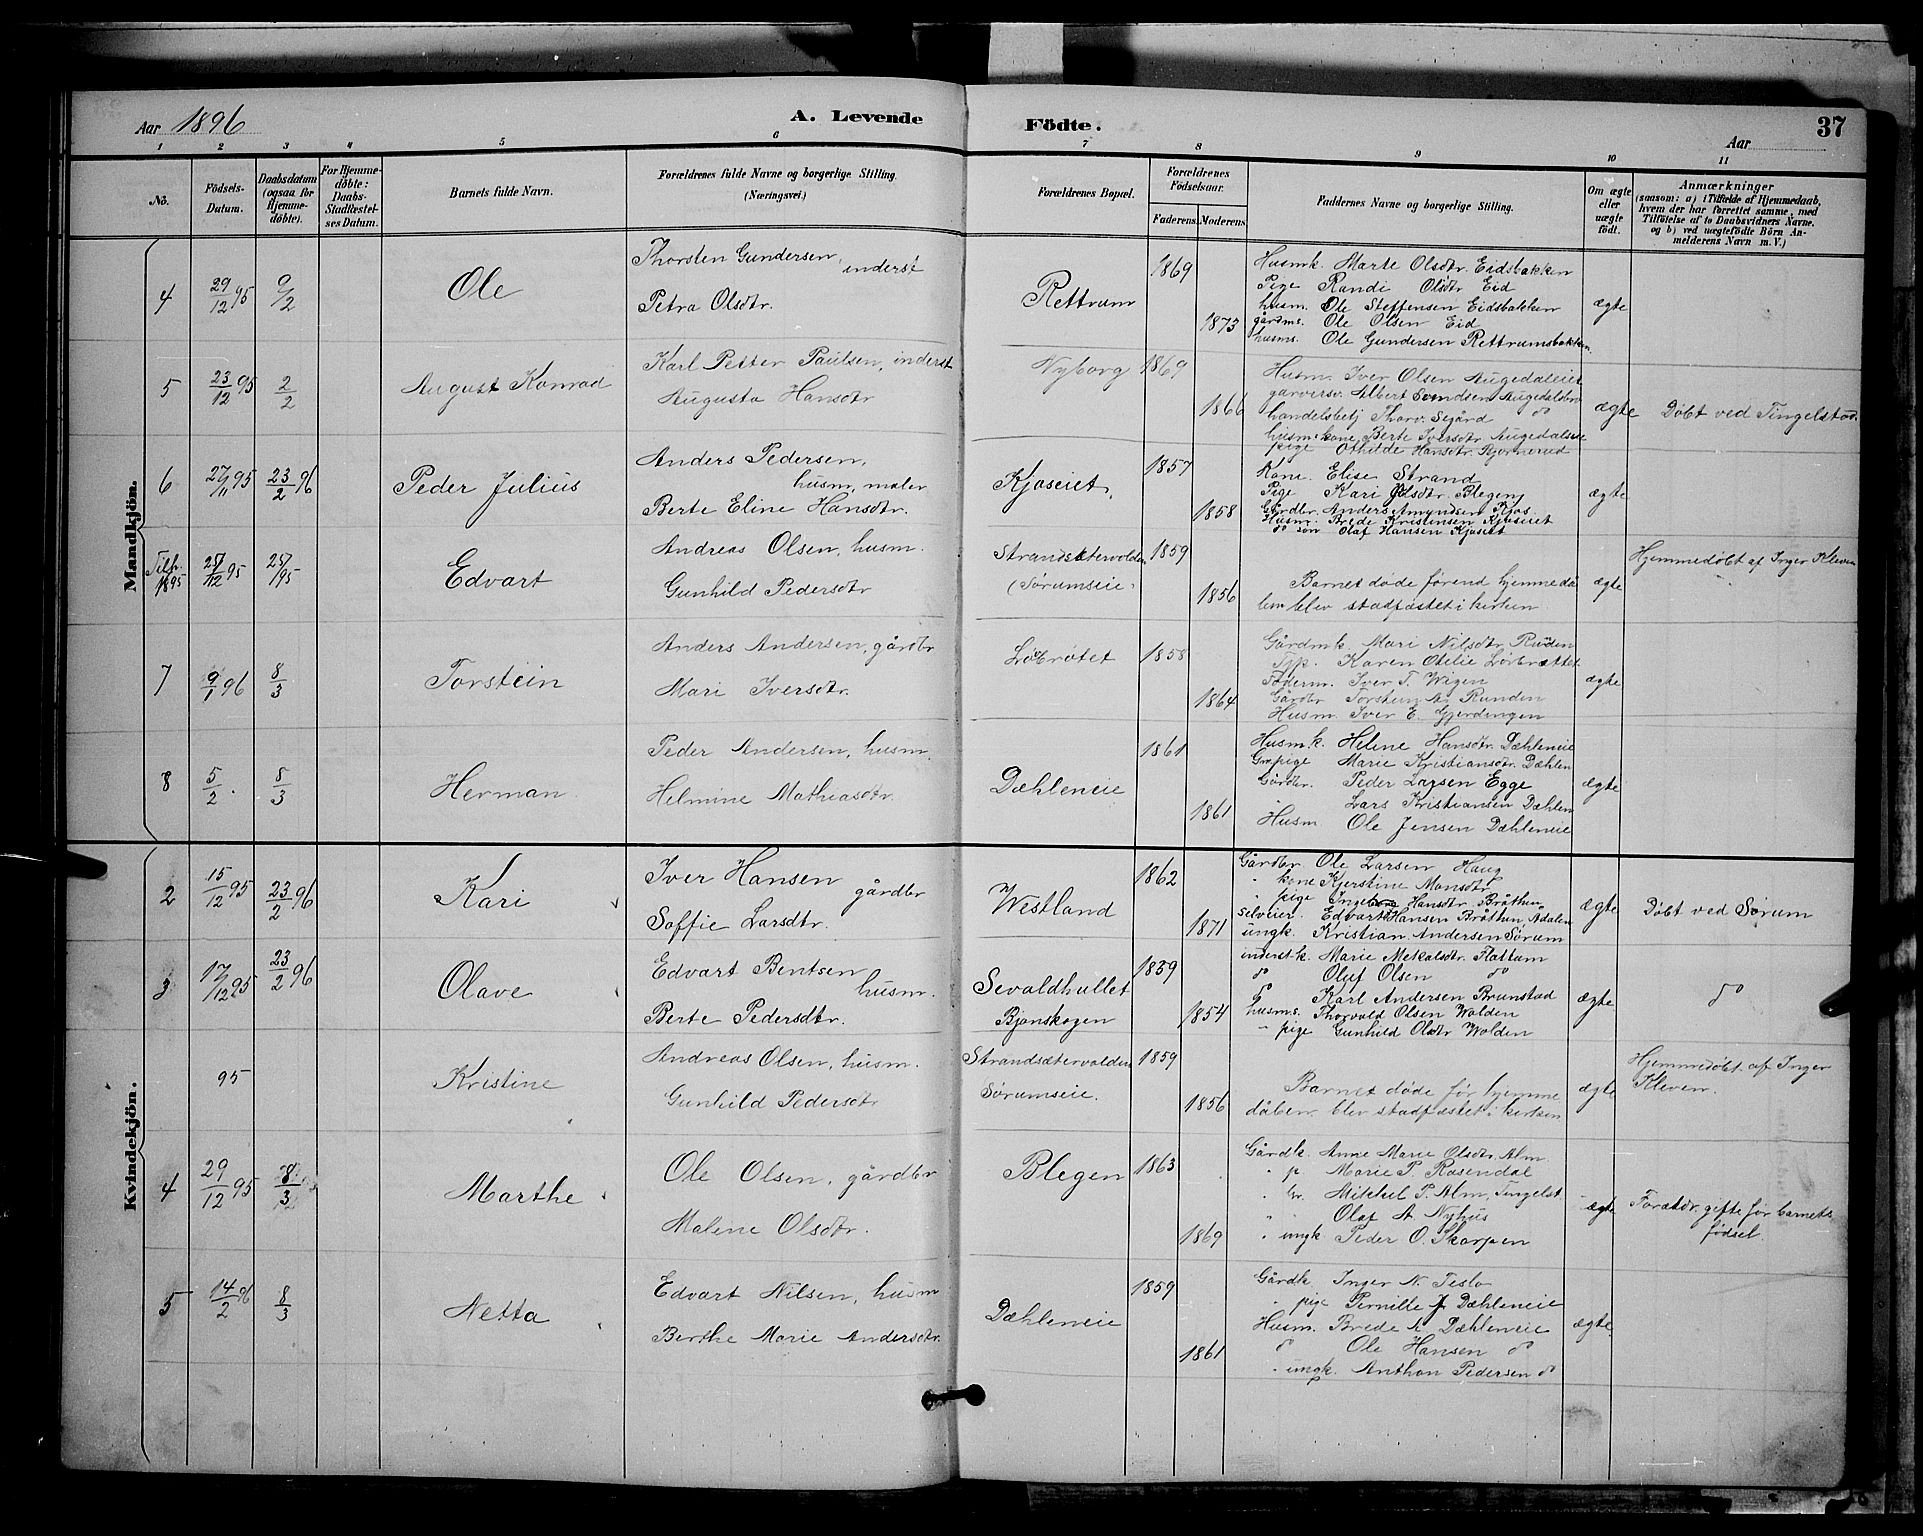 Aar 1896
A. Levende
Födte.
Aar
37
1 2 3 4 5 6 7 8 9 10 11
No.
Födsels-
Datum.
Daabsdatum
(ogsaa for
Hjemme-
döbte).
For Hjemme-
döbte:
Daabs-
Stadfæstel-
ses Datum.
Barnets fulde Navn.
Forældrenes fulde Navne og borgerlige Stilling.
(Næringsvei.)
Forældrenes Bopæl.
Forældrenes
Födselsaar.
Faderens. Moderens.
Faddernes Navne og borgerlige Stilling.
Om ægte
eller
uægte
födt.
Anmærkninger
(saasom: a) i Tilfælde af Hjemmedaab,
hvem der har forrettet samme, med
Tilföielse af to Daabsvidners Navne.
og b) ved uægtefödte Börn An-
melderens Navn m. V.)
Mandkjön.
4 29/12 95 9/2 Ole
Thorsten Gundersen, inderst
Petra Olsdtr.
Rettrum
1869
1873
Husmk. Marte Olsdtr. Eidsbakken
Pige Randi Olsdtr Eid
husm. Ole Steffensen Eidsbakken
gårdms. Ole Olsen Eid
husms. Ole Gundersen Rettrumsbakken
ægte
5 23/12 95 2/2 August Konrad
Karl Petter Paulsen, inderst
Augusta Hansdtr
Nyborg
1869
1866
Husm. Iver Olsen Augedaleiet
garversv. Albert Svendsen Augedalsbro
handelsbetj Thorv. Segård do
husm.kone Berte Iversdtr. Augedalseie
pige Othilde Hansdtr. Bjørnerud
ægte
Døbt ved Tingelstad.
6 27/11 95 23/2 96 Peder Julius
Anders Pedersen,
husm, maler
Berte Eline Hansdtr.
Kjoseiet,
1857
1858
Kone. Elise Strand
Pige Kari Olsdtr. Blegen
Gårdbr. Anders Amundsen Kjos
Husm. Brede Kristensen Kjoseiet
do søn Olaf Hansen Kjoseiet
ægte
Tilh.
1895 25/12 95 25/ 95 Edvart
Andreas Olsen, husm.
Gunhild Pedersdtr
Strandsætervolden
(Sørumseie)
1859
1856
Barnet døde førend hjemmedå
ben blev stadfæstet i kirken
ægte
Hjemmedøbt af Inger Kleven
7 9/1 96 8/3 Torstein
Anders Andersen, gårdbr
Mari Iversdtr.
Løbrøtet
1858
1864
Gårdmk. Mari Nilsdtr Ruden
Tjp. Karen Otelie Lørbrættet
Føderm. Iver T. Wigen
Gårdbr Torstein A. Runden
Husm. Iver E. Gjerdingen
ægte
8 5/2 . 8/3 Herman
Peder Andersen, husm.
Helmine Mathiasdtr.
Dæhleneie
1861
1861
Husmk. Helene Hansdtr. Dæhleneie
Gmpige Marie Kristiansdtr. Dæhlen
Gårdbr. Peder Larsen Egge
" Lars Kristiansen Dæhlen
Husm Ole Jensen Dæhleneie
ægte
Kvindekjön.
2 15/12 95 23/2 96 Kari
Iver Hansen gårdbr
Soffie Larsdtr.
Westland
1862
1871
Gårdbr. Ole Larsen Haug
" kone Kjerstine Monsdtr
" pige Ingeborg Hansdtr. Bråthen
selveier. Edvart Hansen Bråthen Adalen
ungk. Kristian Andersen Sørum
ægte
Døbt ved Sørum
3 17/12 95 23/2 96 Olave
Edvart Bentsen
husm.
Berte Pedersdtr.
Sevaldhullet
Bjonskogen
1839
1854
inderst.k. Marie Mekalsdtr. Flattum
do Oluf Olsen do
do Karl Andersen Brunstad
husms. Thorvald Olsen Wolden
" pige Gunhild Olsdtr Wolden
ægte
do
95 Kristine
Andreas Olsen, husm.
Gunhild Pedersdtr
Strandsætervolden
Sørumseie.
1859
1856
Barnet døde før hjemme
dåben blev stadfæstet i kirken
ægte
Hjemmedøbt af Inger
Kleven.
4 29/12 95 8/3 Marthe
Ole Olsen, gårdbr
Malene Olsdtr.
Blegen
1863
1869
Gårdk. Anne Marie Olsdtr. Alm
" p. Marie P. Rosendal
" br. Mikkel P. Alm, Tingelst
" Olaf A. Nyhus
" ungk. Peder O. Skarpen
ægte
Forældr. gifte før barnets
fødsel.
5 14/2 96 8/3 Netta
Edvart Nilsen, husm
Berthe Marie Andersdtr.
Dæhleneie
1859
1861
Gårdk. Inger N. Teslo
" pige Pernille J Dæhleneie
Husm. Brede A Dæhleneie
do Ole Hansen do
" ungk. Anthon Pedersen do
ægte.